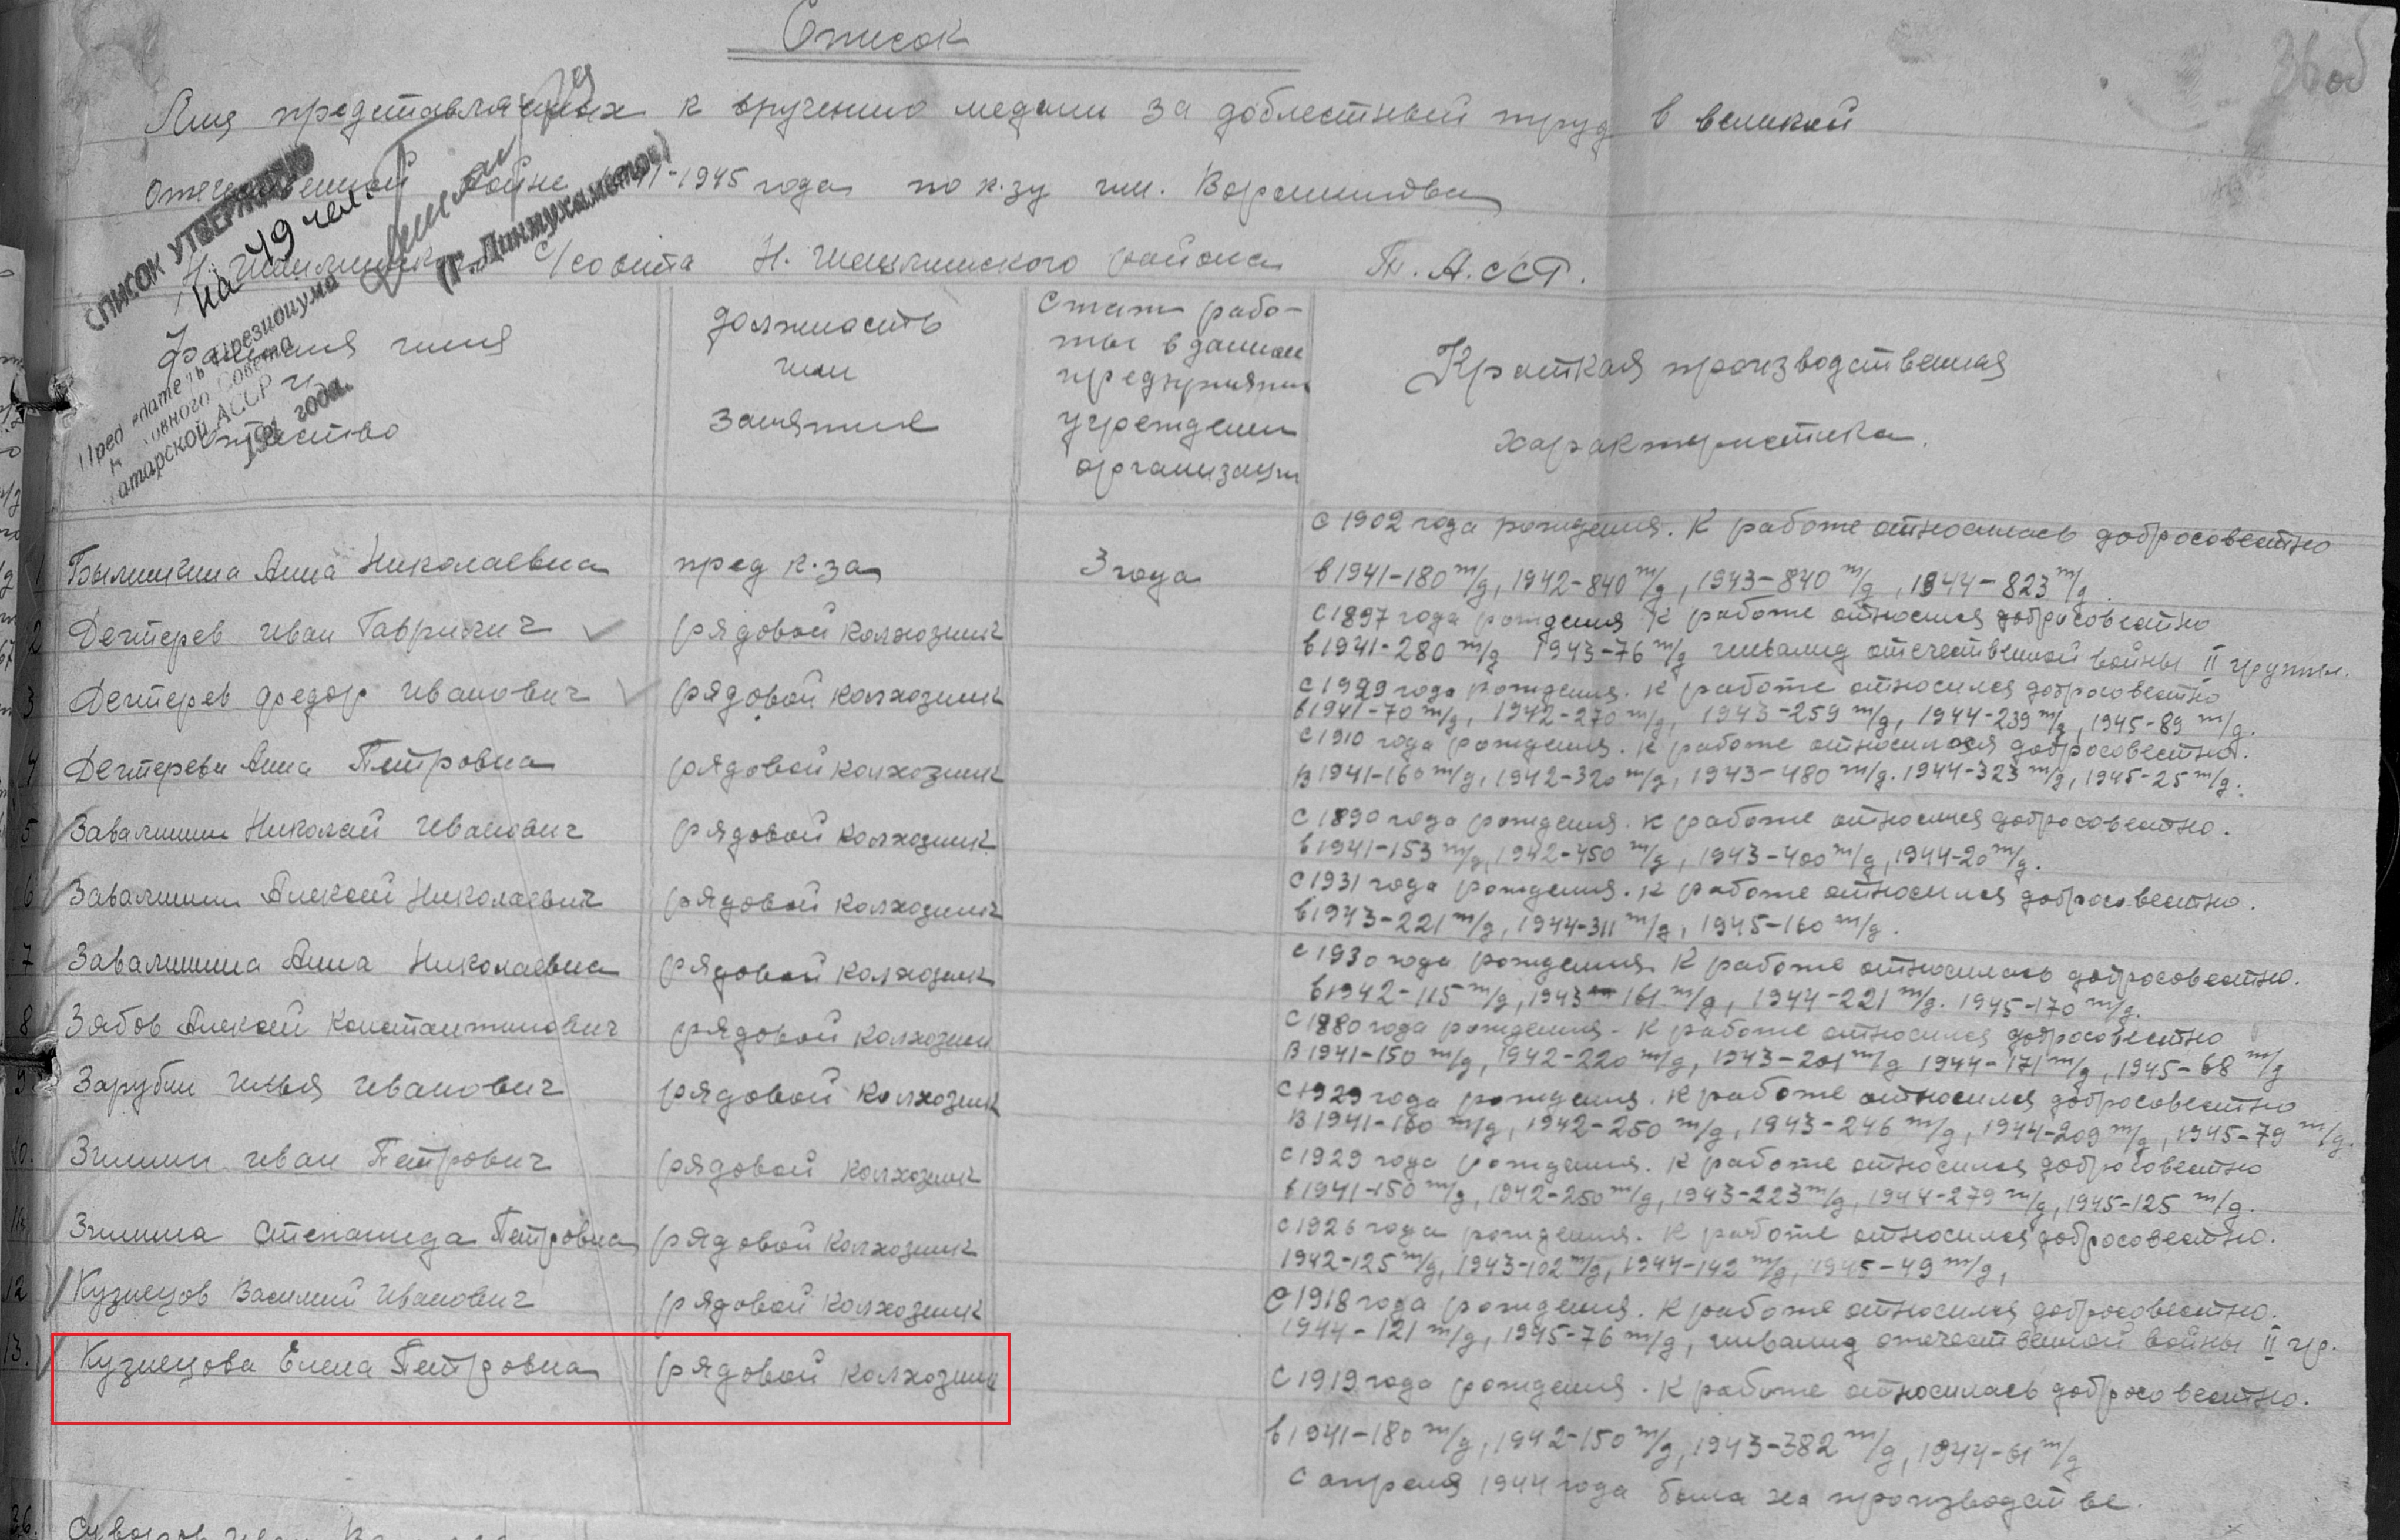 Список
Лиц представляемых к вручению медали за доблестный труд в великой
Отечественной войне 1941-1945 года по к.зу им. Ворошилова
Н. Шешминского с/совета Н. Шешминского района Т. А. ССР.
СПИСОК УТВЕРЖДЕНО
на 49 чел.
Председатель Президиума
Верховного Совета
Татарской АССР
194 года.
(Г. Динмухаметов)
36 об
Фамилия имя
отчество
должность
или
занятие
Стаж рабо-
ты в данном
предприятии
учреждении
организации
Краткая производственная
характеристика.
с 1902 года рождения. К работе относилась добросовестно
1 Былинкина Анна Николаевна пред к.за 3 года в 1941-180 т/д, 1942-840 т/д, 1943-840 т/д, 1944-823 т/д.
с 1897 года рождения К работе относился добросовестно
2 Дегтерев Иван Гаврилич рядовой колхозник в 1941-280 т/д 1943-76 т/д инвалид отечественной войны II группы.
с 1929 года рождения. К работе относился добросовестно
3 Дегтерев Федор Иванович рядовой колхозник в 1941-70 т/д, 1942-270 т/д, 1943-259 т/д, 1944-239 т/д, 1945-89 т/д.
с 1910 года рождения. К работе относилася добросовестно.
4 Дегтерева Анна Петровна рядовой колхозник В 1941-160 т/д, 1942-320 т/д, 1943-480 т/д. 1944-323 т/д, 1945-25 т/д.
с 1890 года рождения. К работе относился добросовестно.
5 Завалишин Николай Иванович рядовой колхозник в 1941-153 т/д, 1942-450 т/д, 1943-400 т/д, 1944-20 т/д.
с 1931 года рождения. К работе относился добросовестно.
6 Завалишин Алексей Николаевич рядовой колхозник в 1943-221 т/д, 1944-311 т/д, 1945-160 т/д.
с 1930 года рождения К работе относилась добросовестно.
7 Завалишина Анна Николаевна рядовой колхозник в 1942-115 т/д, 1943-161 т/д, 1944-221 т/д. 1945-170 т/д.
с 1880 года рождения - К работе относился добросовестно
8 Зябов Алексей Константинович рядовой колхозник В 1941-150 т/д, 1942-220 т/д, 1943-201 т/д 1944-171 т/д, 1945-68 т/д
с 1929 года рождения. К работе относился добросовестно
9 Зарубин Илья Иванович рядовой колхозник В 1941-160 т/д, 1942-250 т/д, 1943-246 т/д, 1944-209 т/д, 1945-79 т/д.
с 1929 года рождения. К работе относился добросовестно
10. Зимин Иван Петрович рядовой колхозник в 1941-150 т/д, 1942-250 т/д, 1943-223 т/д, 1944-279 т/д, 1945-125 т/д.
с 1926 года рождения. К работе относился добросовестно.
11 Зимина Степанида Петровна рядовой колхозник 1942-125 т/д, 1943-102 т/д, 1944-142 т/д, 1945-49 т/д,
12 Кузнецов Василий Иванович рядовой колхозник с 1918 года рождения. К работе относился добросовестно.
1944-121 т/д, 1945-76 т/д, инвалид отечественной войны II гр.
13. Кузнецова Елена Петровна рядовой колхозник с 1919 года рождения. К работе относилась добросовестно.
в 1941-180 т/д, 1942-150 т/д, 1943-382 т/д, 1944-61 т/д
с апреля 1944 года была на производстве.
26.